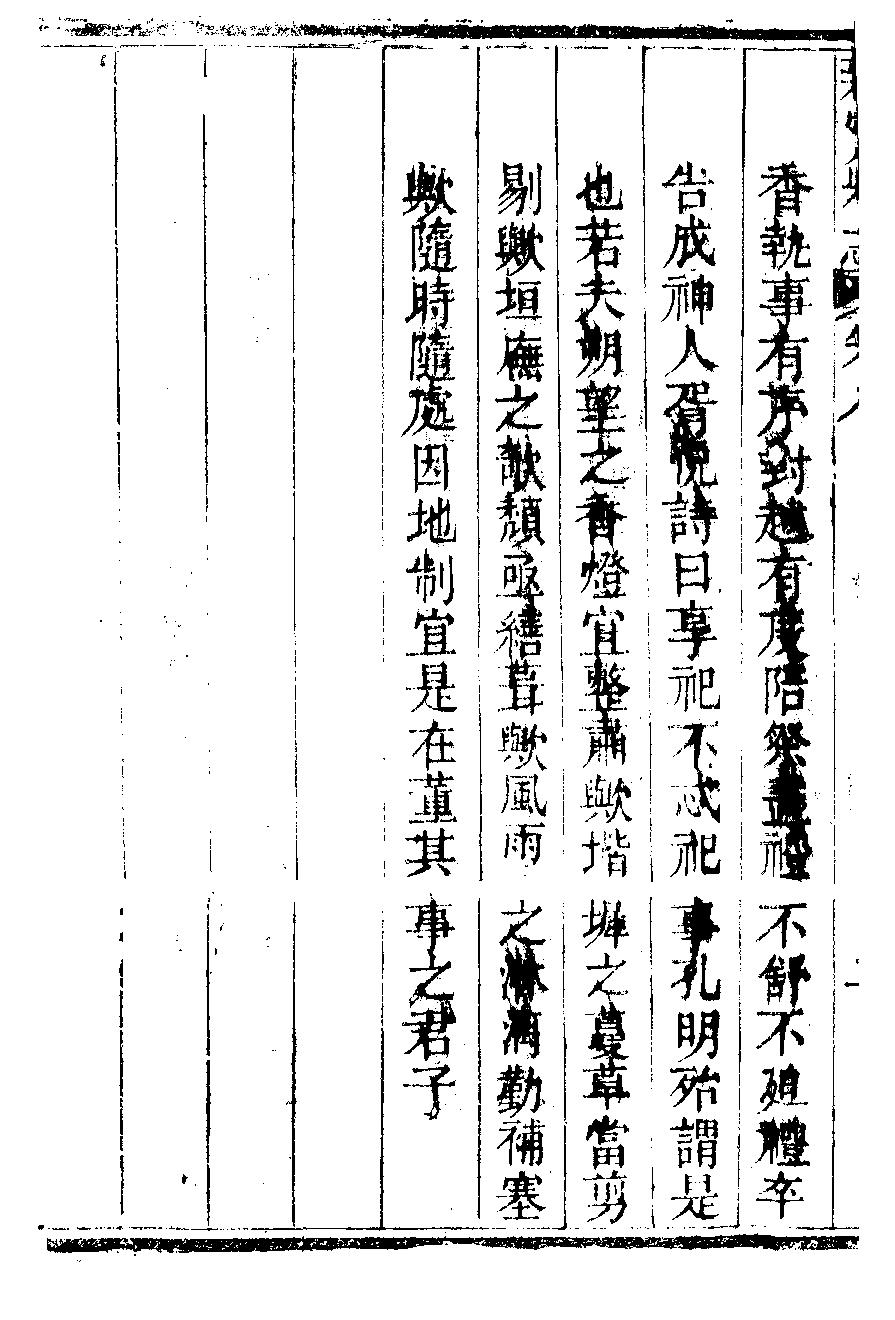 香執事有序對越有度陪祭盡禮不舒不𣨛禮卒
告成神人胥悅詩曰享祀不忒祀事孔明殆謂是
也若夫朔望之香燈宜整肅歟堦墀之蔓草當剪
剔歟垣廡之欹頽亟繕葺歟風雨之淋漓勤補塞
歟隨時隨處因地制宜是在董其事之君子